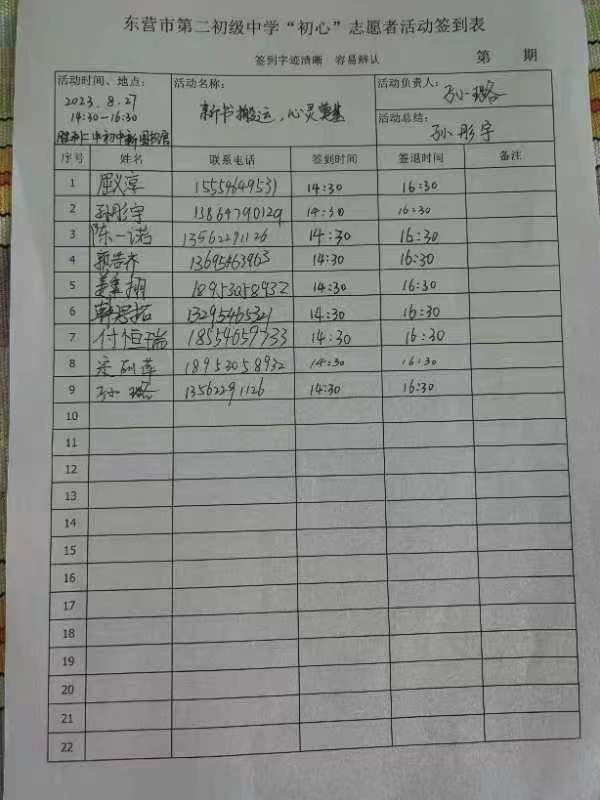 东营市第二初级中学“初心”志愿者活动签到表
签到字迹清晰 容易辨认 第 期
活动时间、地点: 活动名称: 活动负责人: 孙璐
2023.8.27
14:30-16:30 新书搬运,心灵奠基
胜利二中初中新图书馆 活动总结: 孙彤宇
序号 姓名 联系电话 签到时间 签退时间 备注
1 屈义淳 15554649531 14:30 16:30
2 孙彤宇 13864790129 14:30 16:30
3 陈一诺 13562291126 14:30 16:30
4 13695463963 14:30 16:30
5 18953058932 14:30 16:30
6 13295465321 14:30 16:30
7 付恒瑞 18554657733 14:30 16:30
8 18953058932 14:30 16:30
9 孙璐 13562291126 14:30 16:30
10
11
12
13
14
15
16
17
18
19
20
21
22